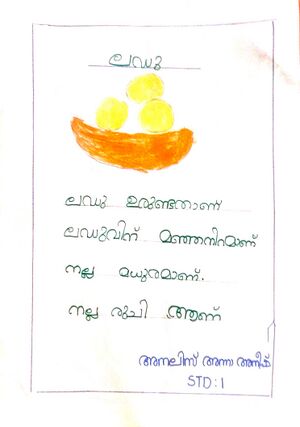 ലഡു
ലഡു ഉരുണ്ടതാണ്
ലഡുവിന് മഞ്ഞനിറമാണ്
നല്ല മധുരമാണ്.
നല്ല രുചി ആണ്
അനലിസ് അന്ന അനീഷ്
STD : 1